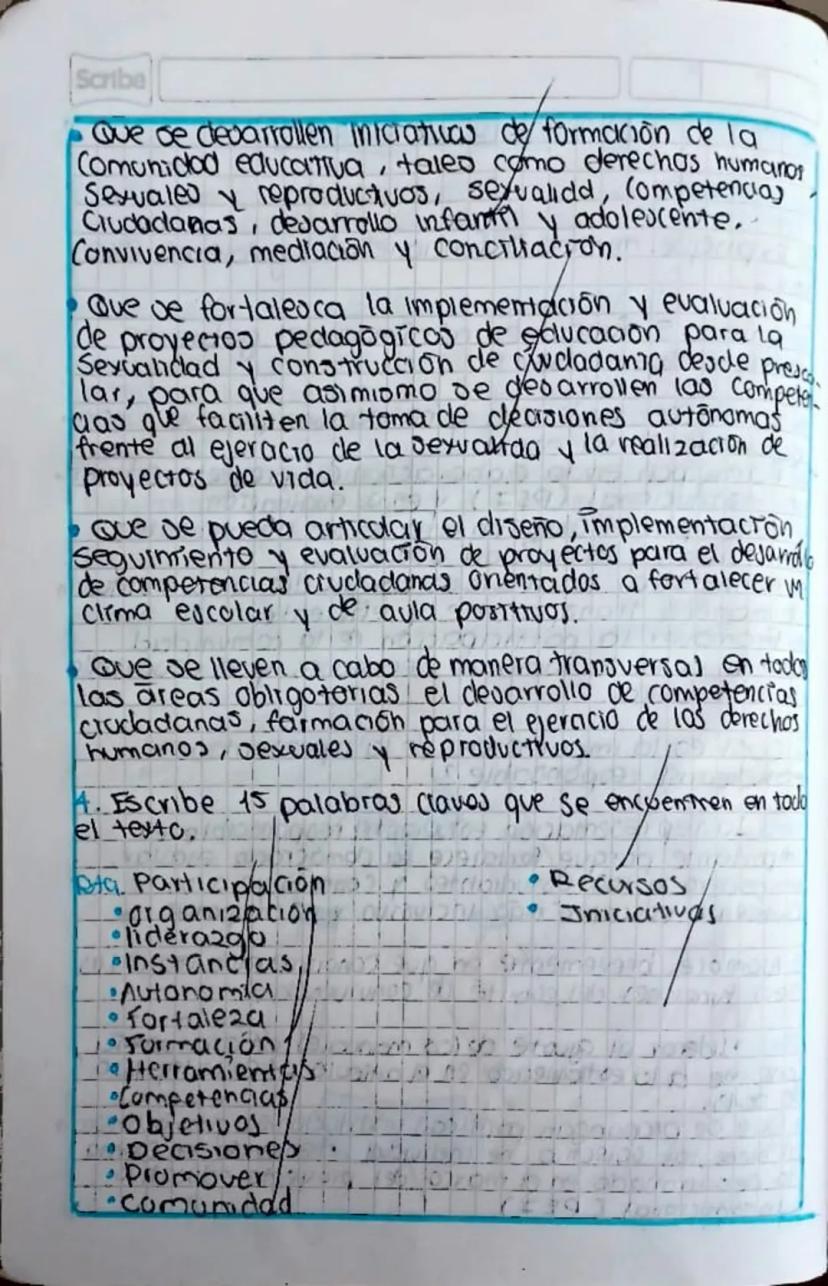 Scribe
• Que se desarrollen iniciativas de formación de la
comunidad educativa, tales como derechos humanos
sexuales y reproductivos, sexualidd, competencias
ciudadanas, desarrollo infantil y adolescente.
Convivencia, mediación y conciliación.
• Que se fortalesca la implementación y evaluación
de proyectos pedagógicos de educación para la
sexualidad y construcción de ciudadania desde presco-
lar, para que asimismo se desarrollen las competen-
cias que faciliten la toma de decisiones autónomas
frente al ejercicio de la sexualida y la realización de
proyectos de vida.
• Que se pueda articular el diseño, implementación
seguimiento y evaluación de proyectos para el desarrollo
de competencias ciudadanas orientados a fortalecer un
clima escolar y de aula positivos.
• Que se lleven a cabo de manera transversal en todas
las áreas obligatorias el desarrollo de competencias
ciudadanas, formación para el ejercicio de los derechos
humanos, sexuales y reproductivos.
4. Escribe 15 palabras claves que se encuentren en todo
el texto.
Rta. Participación
• organización
• liderazgo
• Instancias
• Autonomia
• Fortaleza
• Formación
• Herramientas
• Competencias
• Objetivos
• Decisiones
• Promover
• Comunidad
• Recursos
• Iniciativas